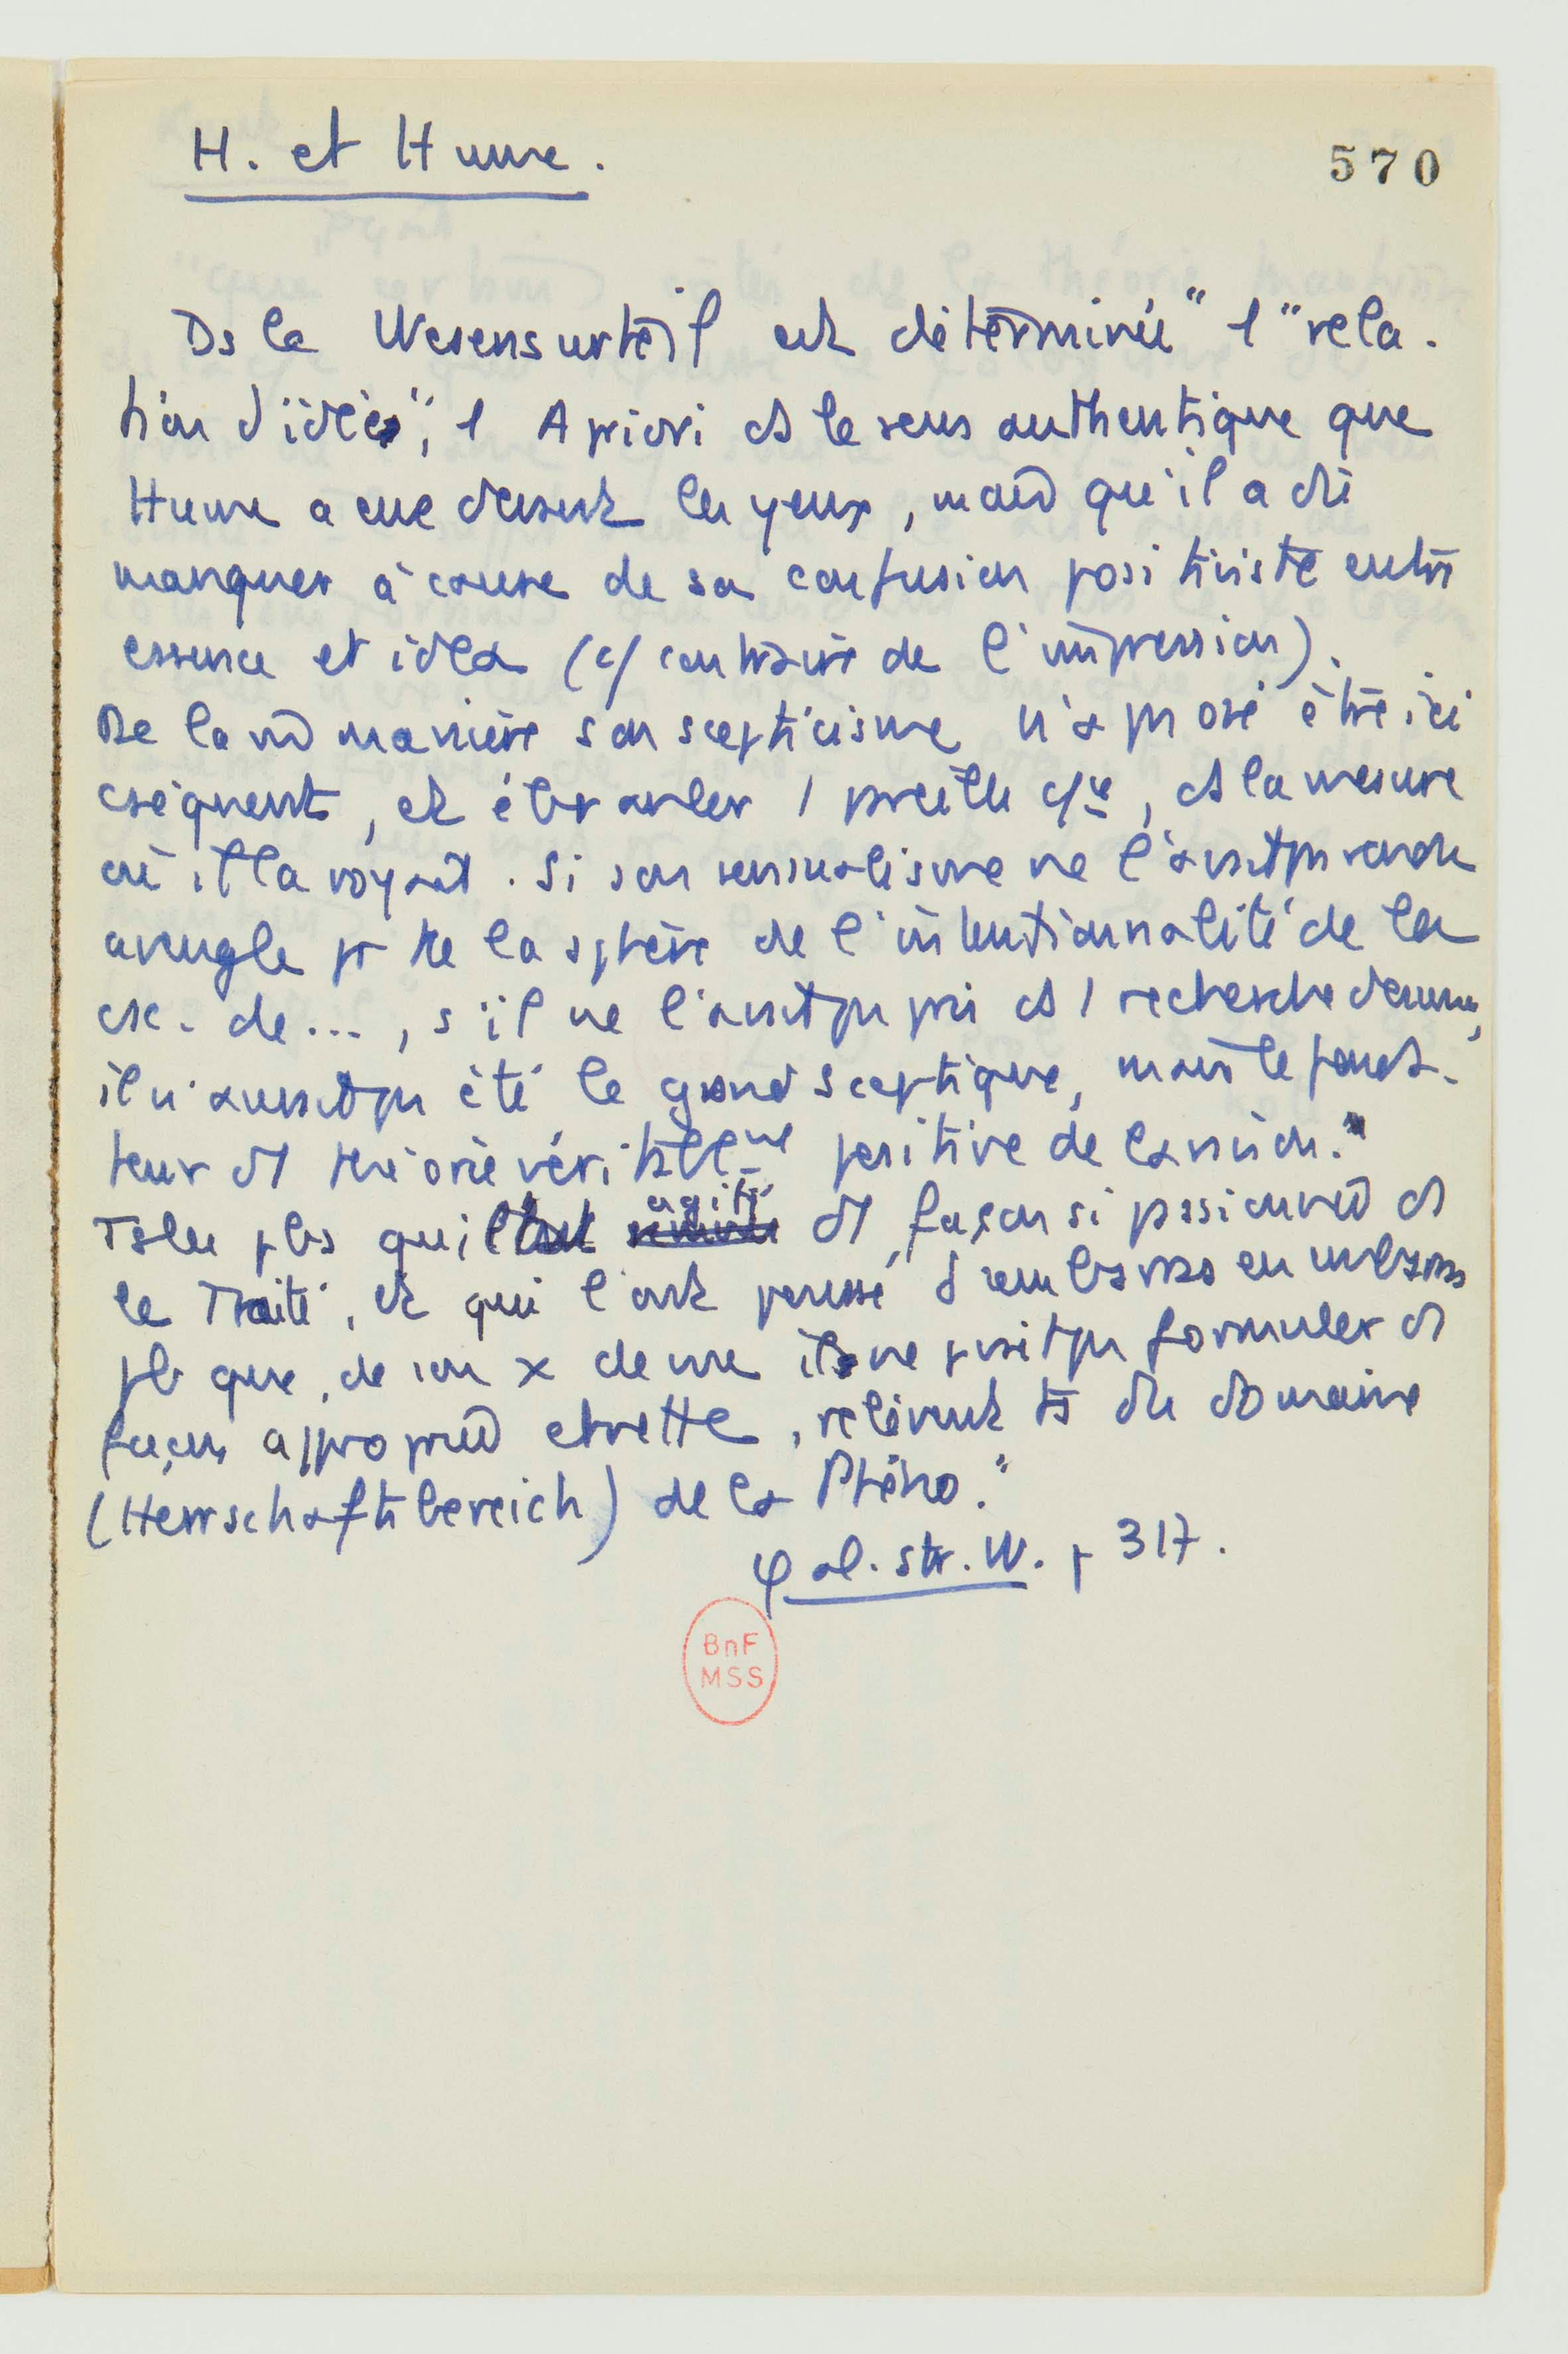 H. et Hume.
570
Ds le Wesensurteil est déterminée "1 "rela-
tion d'idées", 1 A priori ds le sens authentique que
Hume a eue devant les yeux, mais qu'il a dû
manquer à cause de sa confusion positiviste entre
essence et idea (c/ contraire de l'impression).
De la m manière son scepticisme n'a pas osé être ici
cséquent, et ébranler 1 preille c/ce, ds la mesure
où il la voyait. Si son sensualisme ne l'avait pas rendu
aveugle pr tte la sphère de l'intentionnalité de la
csc. de..., s'il ne l'avait pas pris ds 1 recherche d'essence,
il n'aurait pas été le grand sceptique, mais le fonda-
teur d1 théorie véritablemt positive de la raison."
Tous les pbs qui l'ont agité d1 façon si passionnée ds
le Traité, et qui l'ont poussé d'embarras en embarras
pb que, de son x de vue il ne pvait pas formuler d1
façon appropriée et nette, relèvent ts du domaine
(Herrschaftsbereich) de la Phéno."
φ al. str. W. p 317.
BnF
MSS